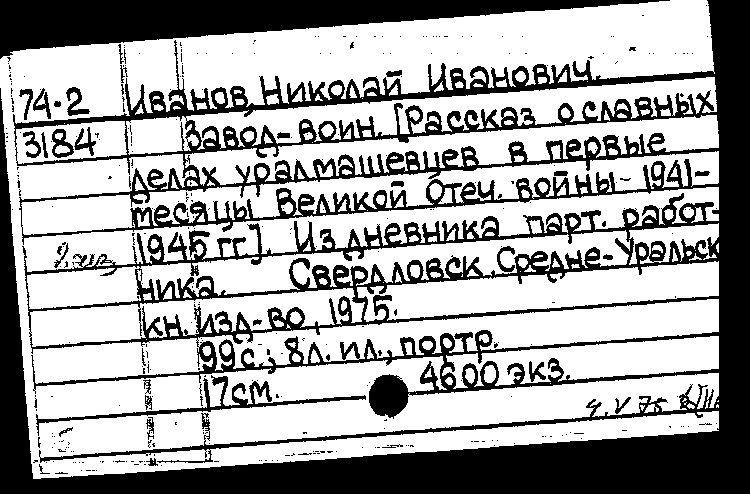 74-2 Иванов, Николай Иванович.
3184 Завод-воин. [Рассказ о славных
делах уралмашевцев в первые
месяцы Великой Отеч. войны - 1941-
1945 гг]. Из дневника парт. работ-
ника. Свердловск, Средне-Уральск
кн. изд-во, 1975.
99с.; 8л. ил., портр.
17см. 4600 экз.
4.V 75